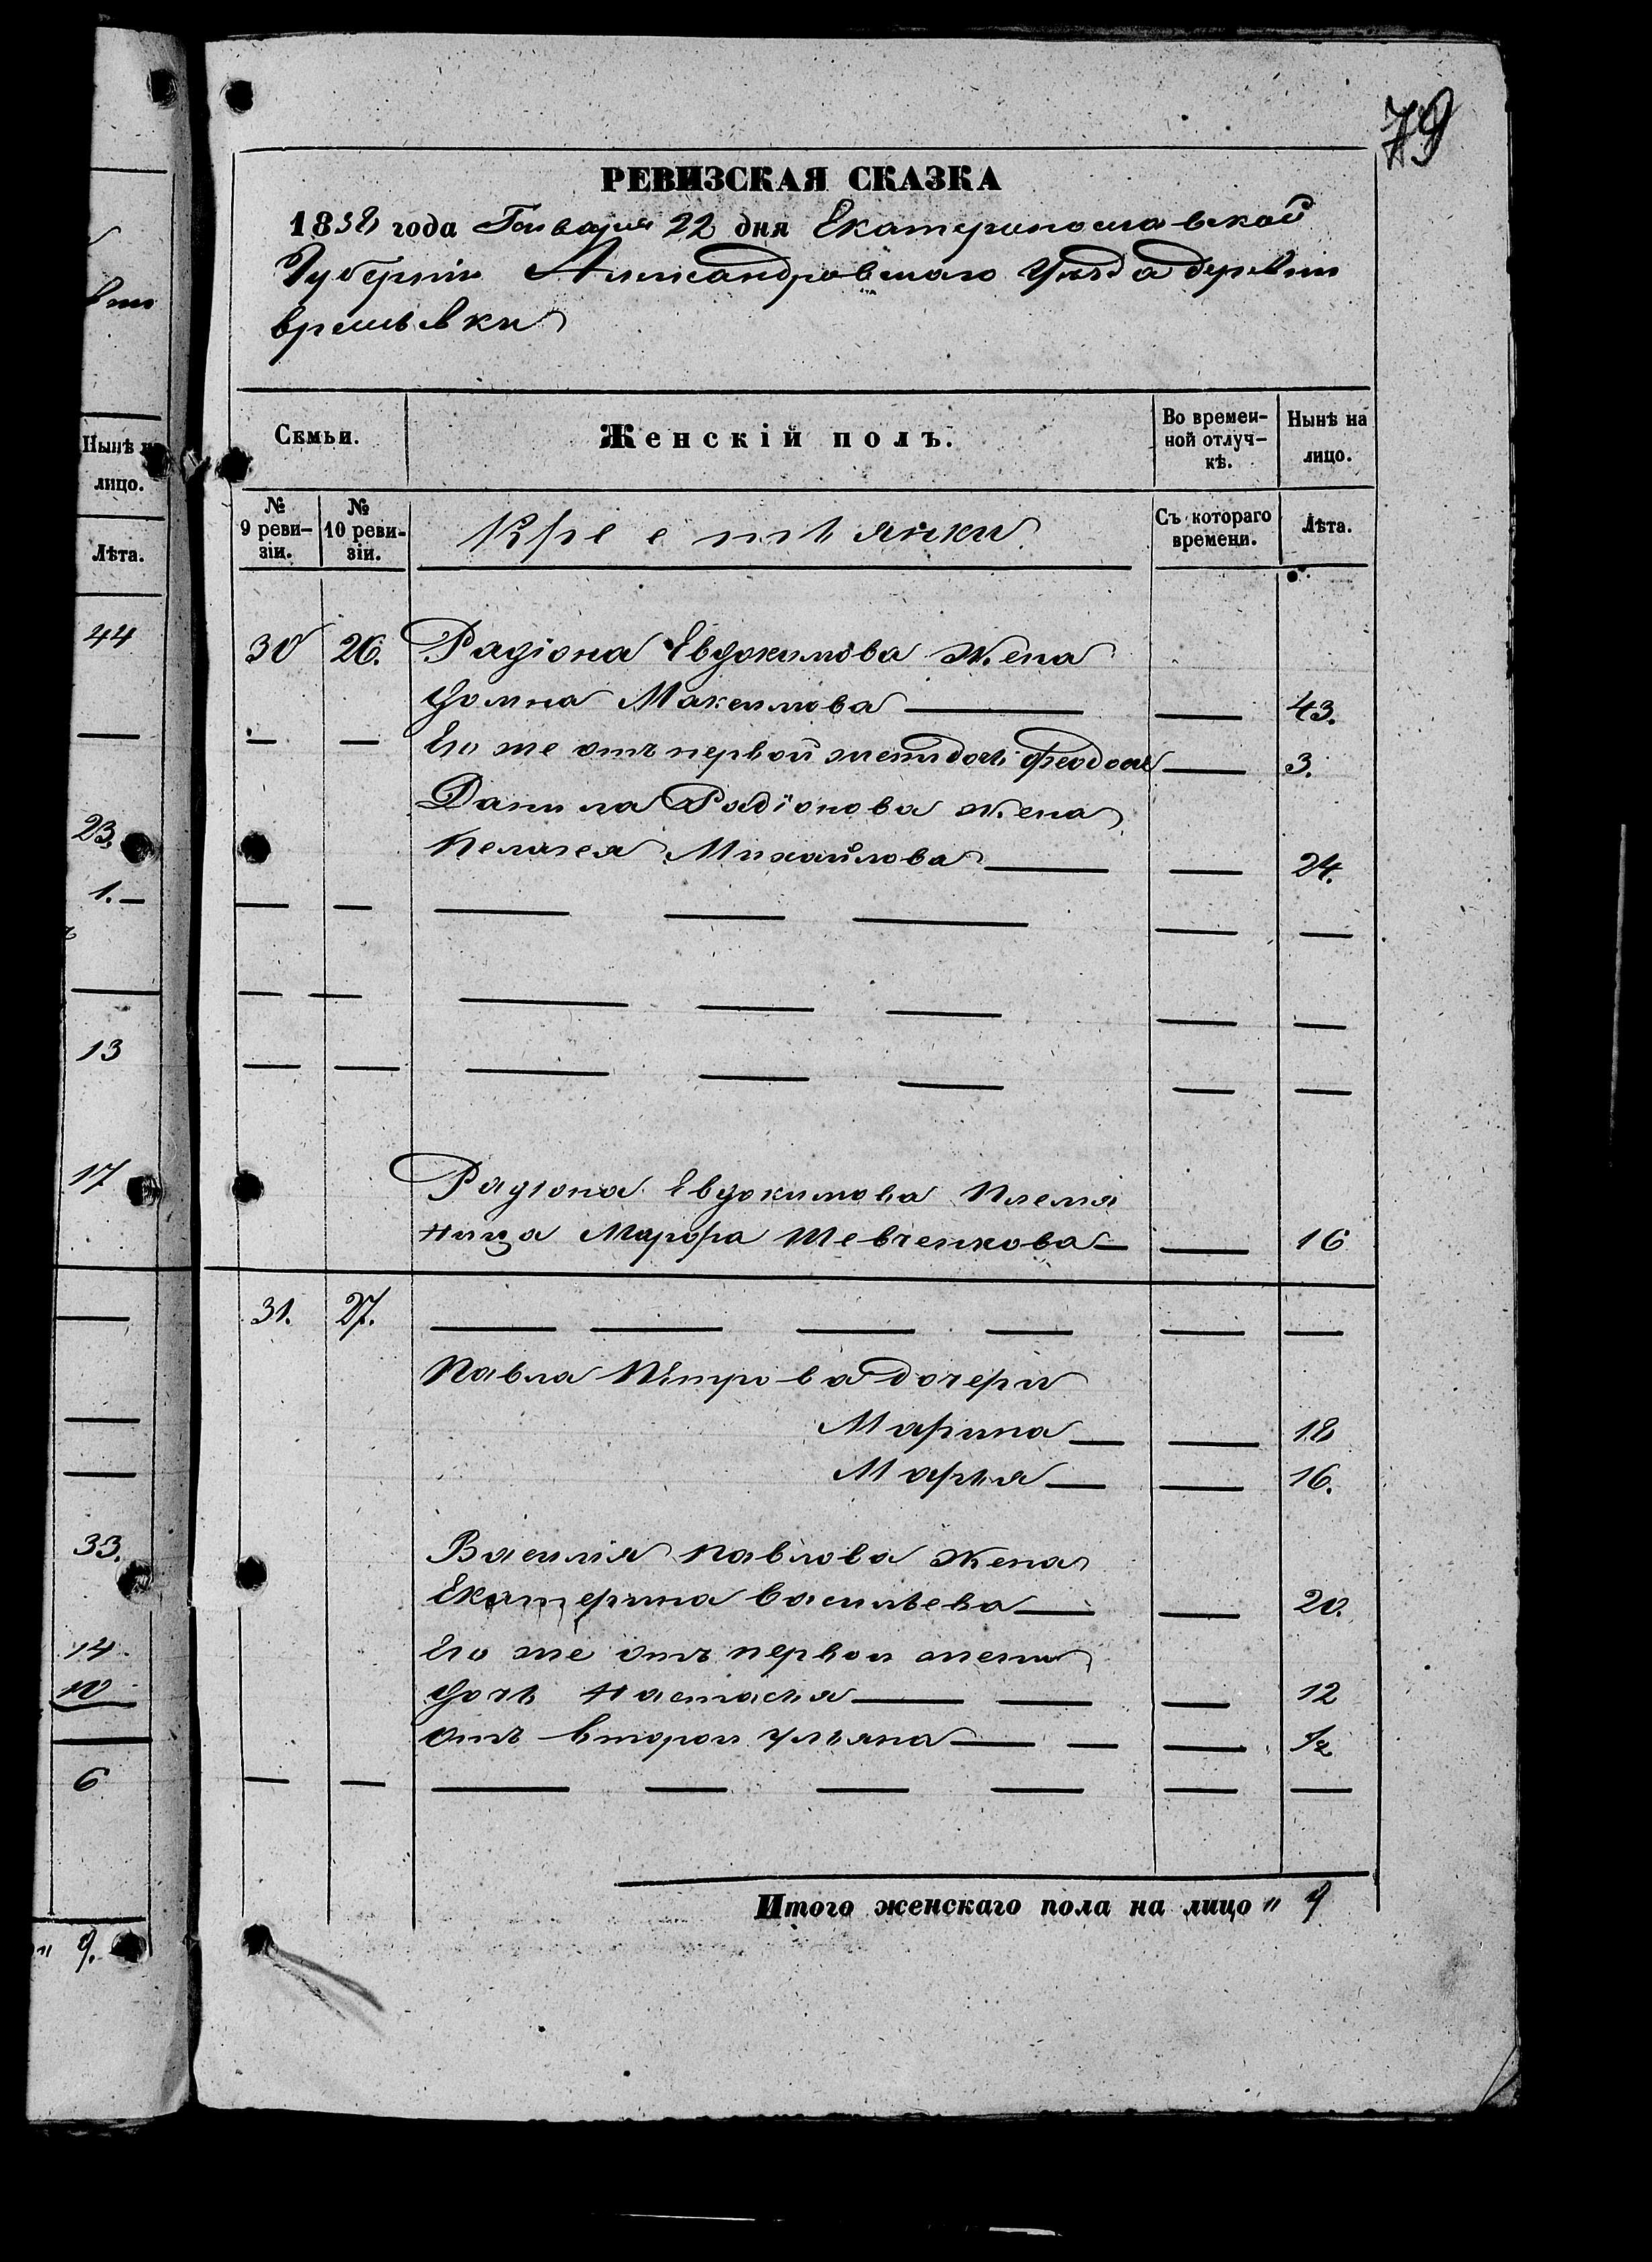 79
РЕВИЗСКАЯ СКАЗКА
1858 года Генваря 22 дня Екатеринославской
Губерніи Александровскаго Уѣзда деревни
Времьевки
Семьи.
Женскій полъ.
Во времен-
ной отлуч-
кѣ.
Нынѣ на
лицо.
№
9 реви-
зіи.
№
10 реви-
зіи.
Крестьянки
Съ котораго
времени.
Лѣта.
30 26. Радіона Евдокимова жена
Домна Максимова 43.
Его же отъ первой жены дочь Феодос 3.
Данила Радіонова жена
Пелагея Михайлова 24.
Радіона Евдокимова племя
ница Марфа Шевченкова 16
31. 27.
Павла Петрова дочери
Марина 18
Марья 16.
Василія Павлова жена
Екатерина Васильева 20.
Его же отъ первой жены
дочь Настасья 12
отъ второй Ульяна 1/2
Итого женскаго пола на лицо " 9
Нынѣ н
лицо.
Лѣта.
44
23.
1.
13
17
33.
14
10
6
" 9.